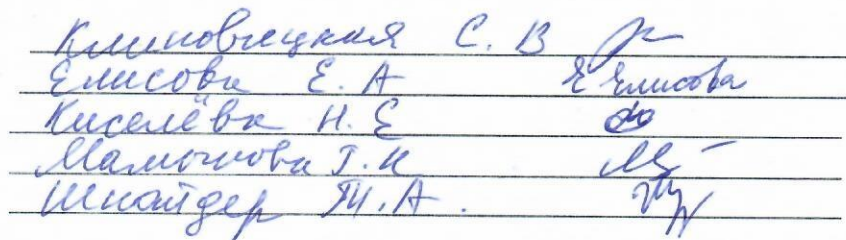 Климовицкая С. В
Елисова Е. А Е Елисова
Киселёва Н. Е
Мамонова Г. Н
Шнайдер Т. А.